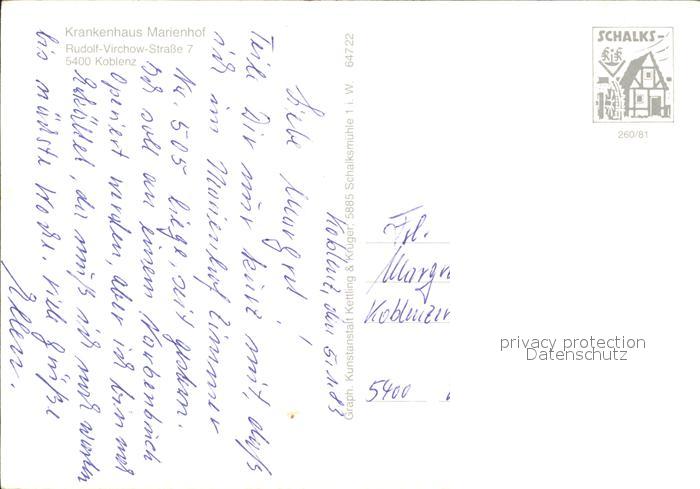 Krankenhaus Marienhof
Rudolf-Virchow-Straße 7
5400 Koblenz
Graph. Kunstanstalt Kettling & Krüger, 5885 Schalksmühle 1 i. W 64722
SCHALKS-
260/81
Koblenz, den 5.1.83
Liebe Margret!
Teile Dir nur kurz mit, daß
ich im Marienhof Zimmer
Nr. 505 liege, seit gestern.
Ich soll an einem Narbenbruch
operiert werden, aber ich bin noch
erkältet, da muß ich noch warten
bis nächste Woche. Viele Grüße
Ellen.
Frl.
Margr
Koblenzer
5400
privacy protection
Datenschutz